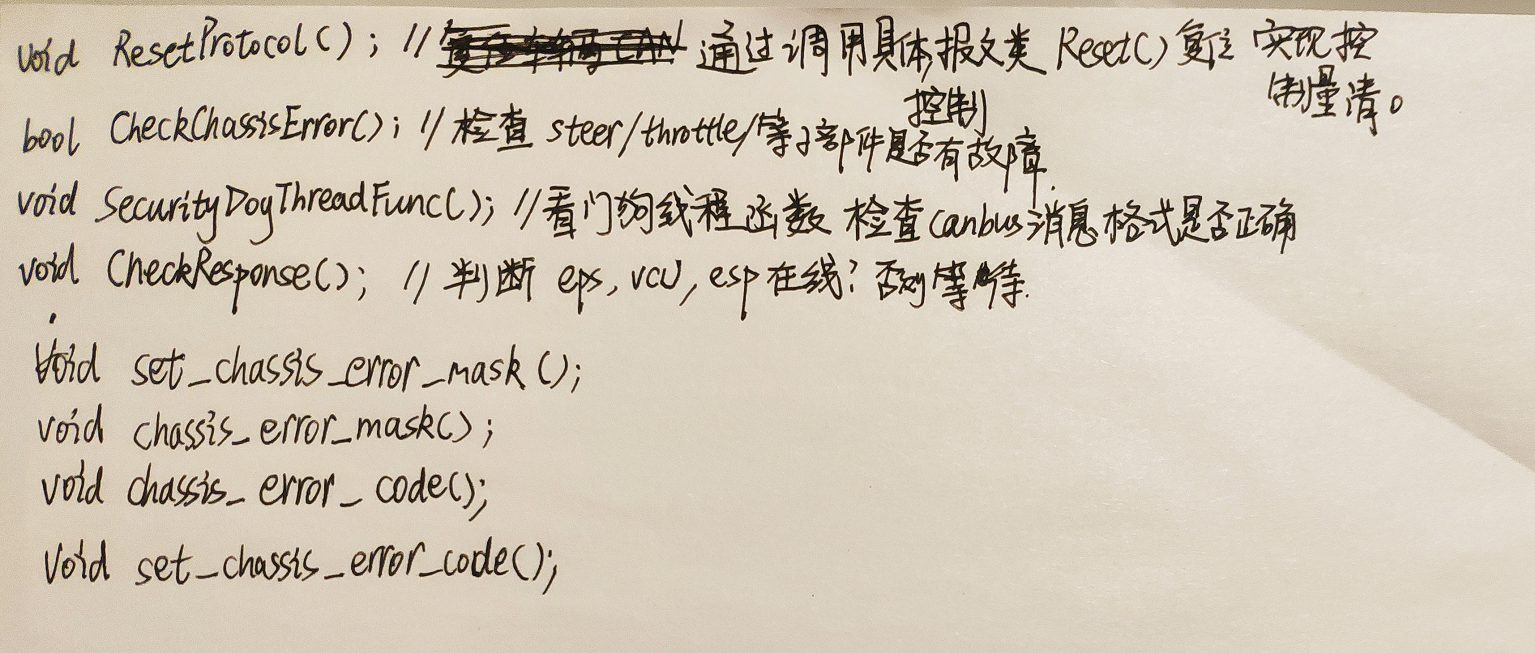 void ResetProtocol(); // 通过调用具体报文类 Reset() 复位 实现控
制量清。
bool CheckChassisError(); // 检查 steer/throttle/等子控制部件是否有故障.
void SecurityDogThreadFunc(); // 看门狗线程函数 检查canbus消息格式是否正确
void CheckResponse(); // 判断 eps, vcu, esp在线? 否则等待.
void set_chassis_error_mask();
void chassis_error_mask();
void chassis_error_code();
void set_chassis_error_code();